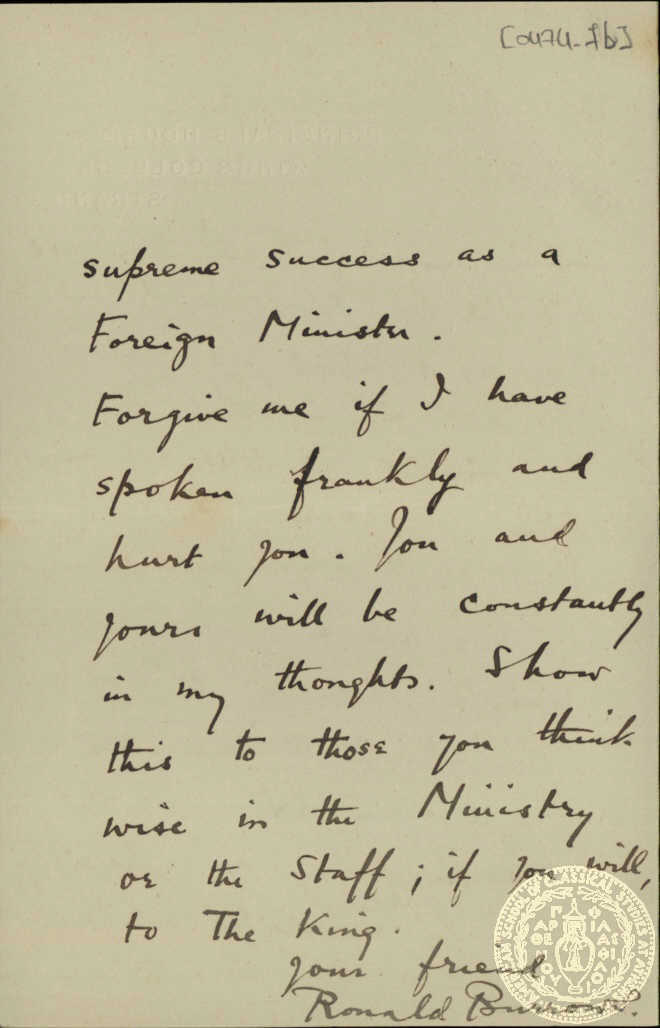 [0474-7b]
supreme success as a
Foreign Minister.
Forgive me if I have
spoken frankly and
hurt you. You and
yours will be constantly
in my thoughts. Show
this to those you think
wise in the Ministry
or the Staff; if you will,
to The King.
your friend
Ronald Burrows.
AMERICAN SCHOOL OF CLASSICAL STUDIES AT ATHENS